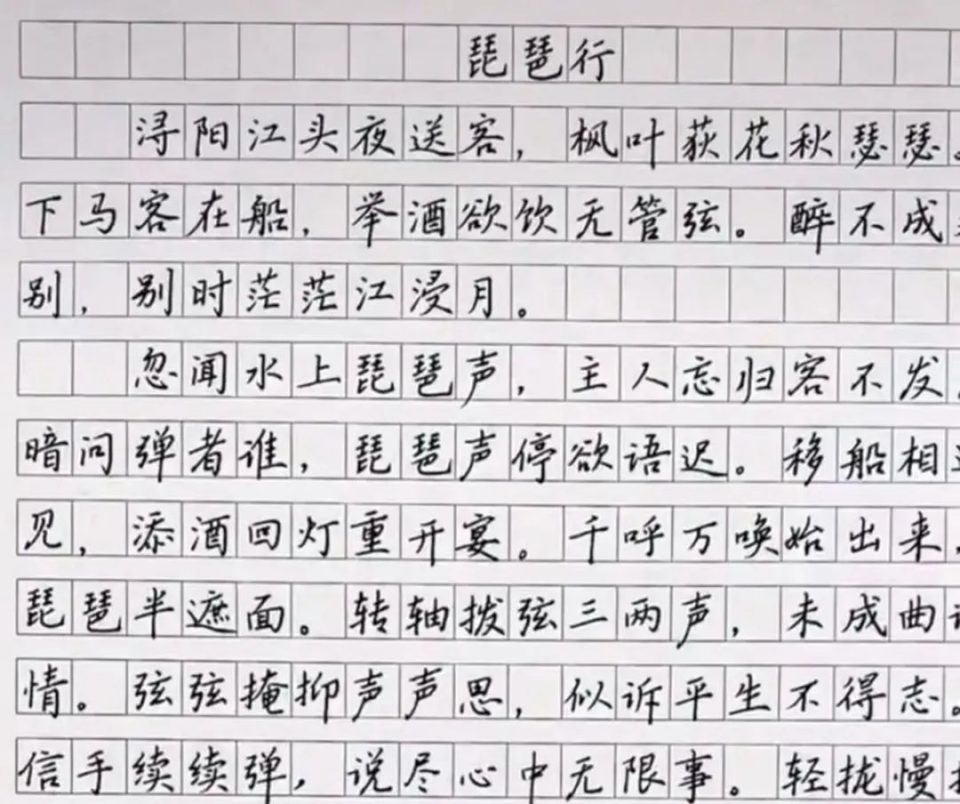 琵琶行
浔阳江头夜送客，枫叶荻花秋瑟瑟。
下马客在船，举酒欲饮无管弦。醉不成
别，别时茫茫江浸月。
忽闻水上琵琶声，主人忘归客不发。
暗问弹者谁，琵琶声停欲语迟。移船相
见，添酒回灯重开宴。千呼万唤始出来，
琵琶半遮面。转轴拨弦三两声，未成曲
情。弦弦掩抑声声思，似诉平生不得志。
信手续续弹，说尽心中无限事。轻拢慢